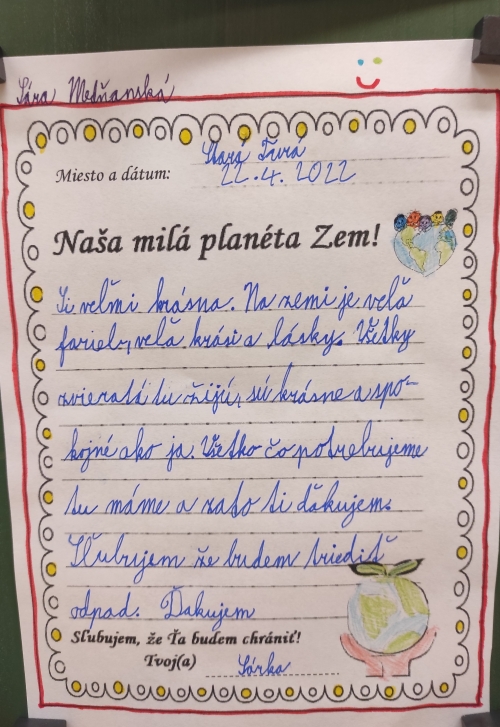 Sára Medňanská
Stará Turá
Miesto a dátum: 22.4. 2022
Naša milá planéta Zem!
Si veľmi krásna. Na zemi je veľa
farieb, veľa krási a lásky. Všetky
zvieratá tu žijú, sú krásne a spo-
kojné ako ja. Všetko čo potrebujeme
tu máme a zato ti ďakujem.
Sľubujem že budem triediť
odpad. Ďakujem
Sľubujem, že Ťa budem chrániť!
Tvoj(a) Sárka